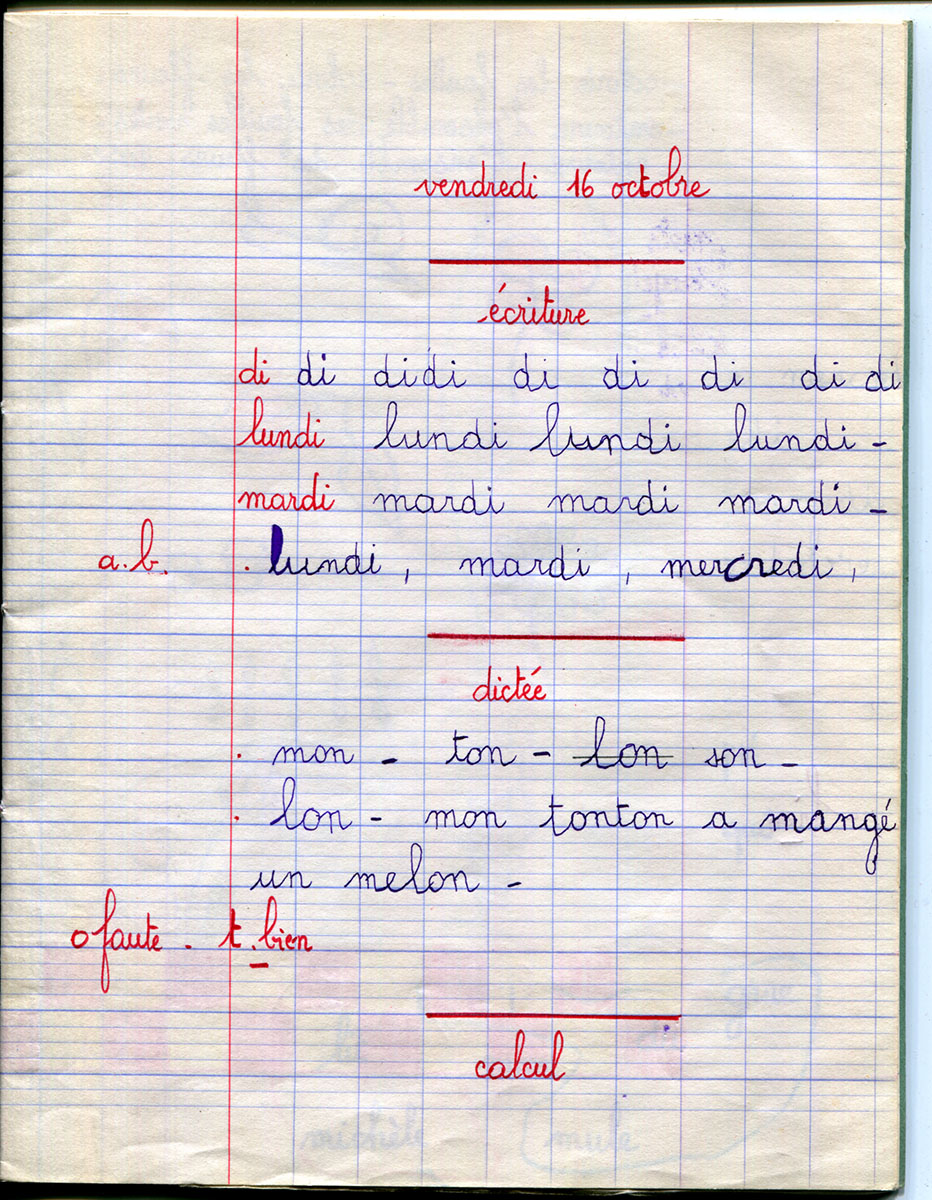 vendredi 16 octobre
écriture
di di didi di di di di di
lundi lundi lundi lundi -
mardi mardi mardi mardi -
a.b. . lundi, mardi, mercredi,
dictée
. mon - ton - lon son -
. lon - mon tonton a mangé
un melon -
0 faute. t. bien
calcul